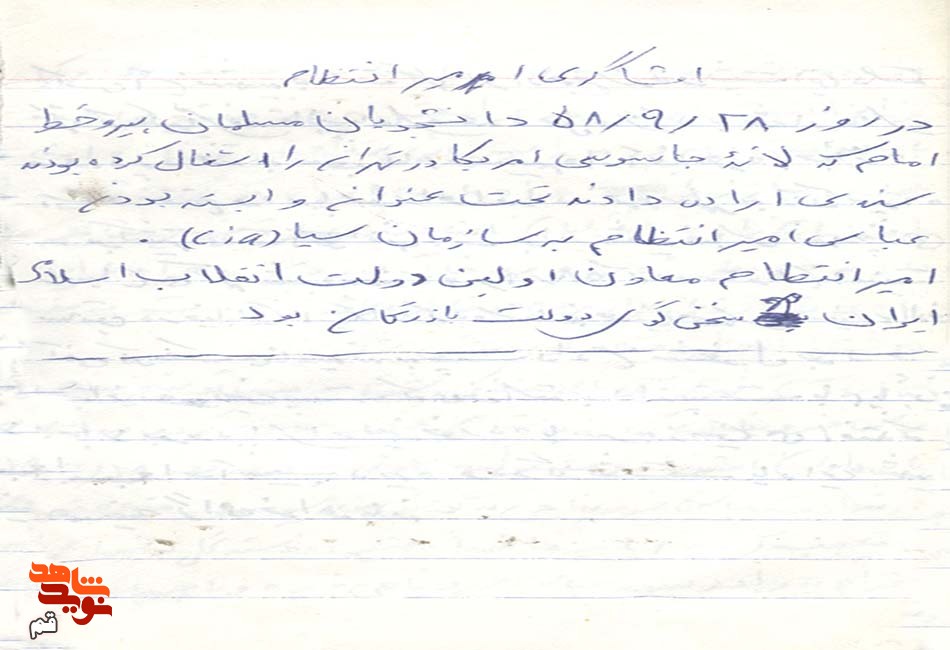 افشاگری امیر انتظام
در روز ۵۸/۹/۲۸ دانشجویان مسلمان پیرو خط
امام که لانهٔ جاسوسی امریکا در تهران را اشغال کرده بودند
سندی ارائه دادند تحت عنوان وابسته بودن
عباس امیر انتظام به سازمان سیا (cia).
امیر انتظام معاون اولین دولت انقلاب اسلامی
ایران سخن گوی دولت بازرگان بود
نوید شاهد
قم